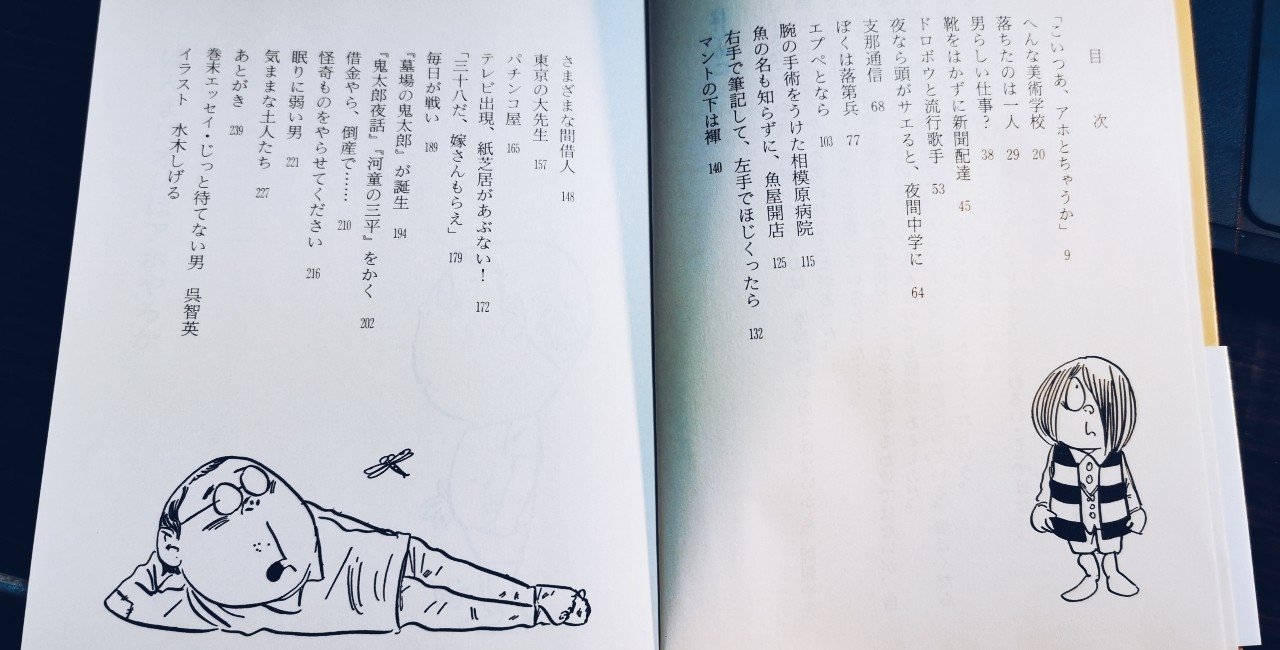 目次
「こいつあ、アホとちゃうか」 9
へんな美術学校 20
落ちたのは一人 29
男らしい仕事? 38
靴をはかずに新聞配達 45
ドロボウと流行歌手 53
夜なら頭がサエると、夜間中学に 64
支那通信 68
ぼくは落第兵 77
エプペとなら 103
腕の手術をうけた相模原病院 115
魚の名も知らずに、魚屋開店 125
右手で筆記して、左手でほじくったら 132
マントの下は褌 140
さまざまな間借人 148
東京の大先生 157
パチンコ屋 165
テレビ出現、紙芝居があぶない! 172
「三十八だ、嫁さんもらえ」 179
毎日が戦い 189
『墓場の鬼太郎』が誕生 194
『鬼太郎夜話』『河童の三平』をかく 202
借金やら、倒産で…… 210
怪奇ものをやらせてください 216
眠りに弱い男 221
気ままな土人たち 227
あとがき 239
巻末エッセイ・じっと待てない男 呉智英
イラスト 水木しげる